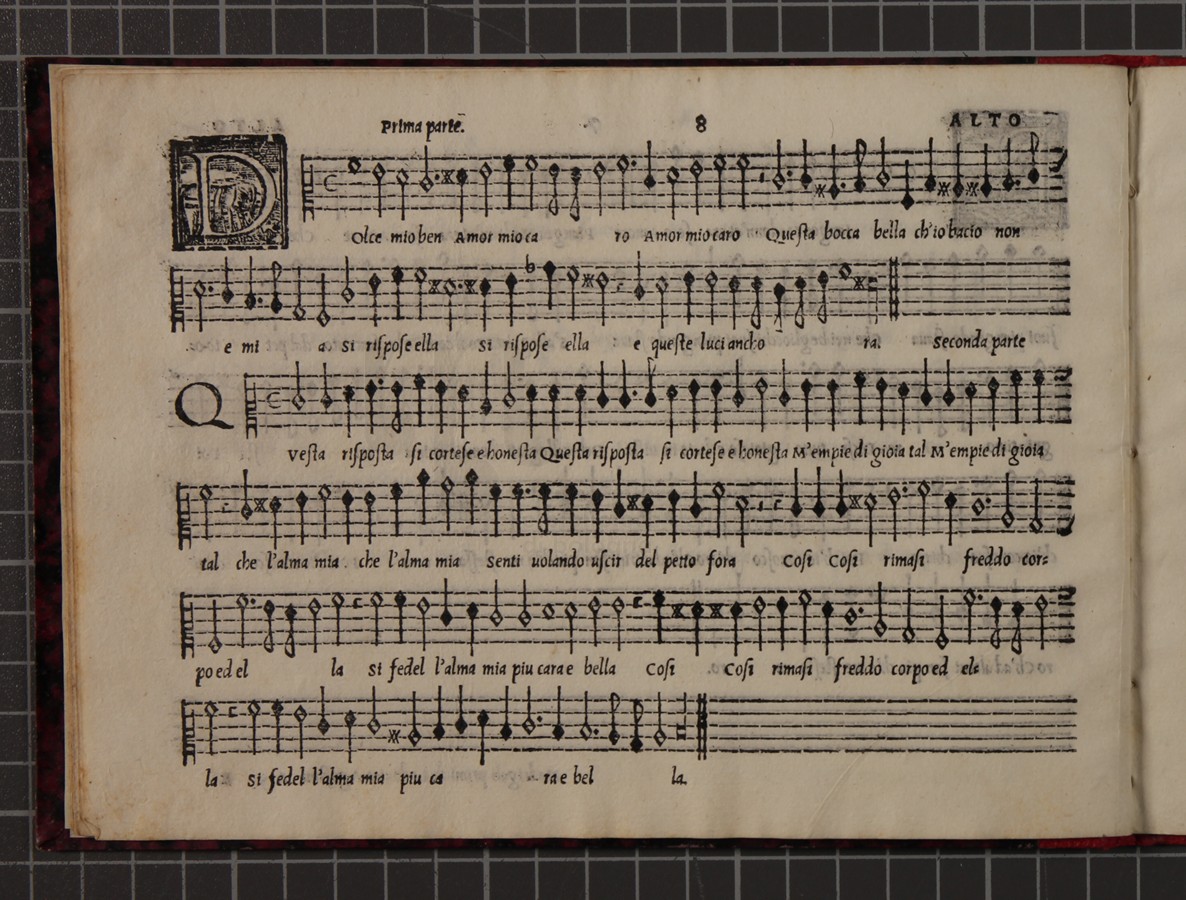 Prima parte. 8 ALTO
DOlce mio ben Amor mio ca ro Amor mio caro Queſta bocca bella ch'io bacio non
e mi a. si riſpoſe ella si riſpoſe ella e queſte luci ancho ra. Seconda parte
QVeſta riſpoſta ſi corteſe e honeſta Queſta riſpoſta ſi corteſe e honeſta M'empie di gioia tal M'empie di gioia
tal che l'alma mia che l'alma mia Senti uolando uſcir del petto fora Coſi Coſi rimaſi freddo cor=
po ed el la si fedel l'alma mia piu cara e bella Coſi Coſi rimaſi freddo corpo ed el=
la si fedel l'alma mia piu ca ra e bel la.